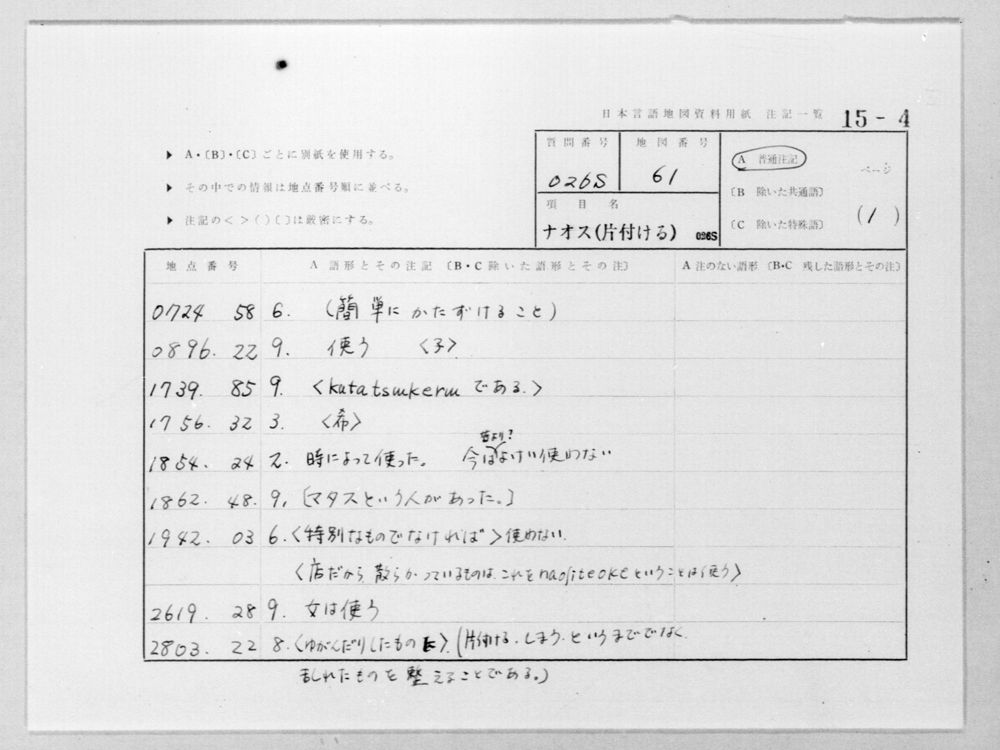 日本言語地図資料用紙 注記一覧 15-4
▶ A・〔B〕・〔C〕ごとに別紙を使用する。
▶ その中での情報は地点番号順に並べる。
▶ 注記の< >( )〔 〕は厳密にする。
質問番号 地図番号
026S 61
項目名
ナオス(片付ける) 026S
A 普通注記
〔B 除いた共通語〕
〔C 除いた特殊語〕
ページ
(1)
地点番号 A 語形とその注記 〔B・C 除いた語形とその注〕 A 注のない語形 〔B・C 残した語形とその注〕
0724 58 6. (簡単にかたずけること)
0896. 22 9. 使う 〈子〉
1739. 85 9. 〈katatsukeruである.〉
1756. 32 3. 〈希〉
昔より?
1854. 24 2. 時によって使った。 今はよけい使わない
1862. 48. 9, 〔マタスという人があった。〕
1942. 03 6.〈特別なものでなければ〉使わない.
〈店だから 散らかっているものは、これをnaojiteokeということは使う〉
2619. 28 9. 女は使う
2803. 22 8.〈ゆがんだりしたもの〉(片付ける.しまう.というまででなく
乱れたものを整えることである。)